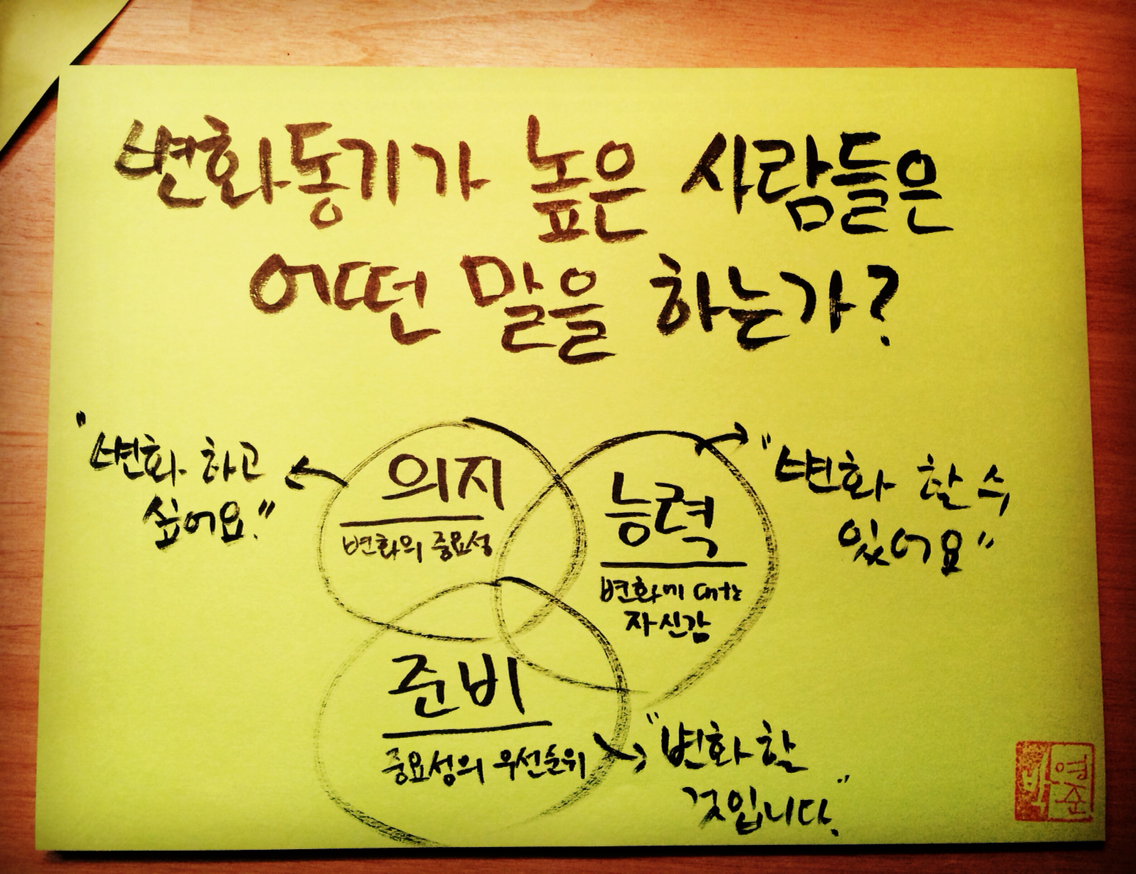 변화동기가 높은 사람들은
어떤 말을 하는가?
"변화 하고
싶어요."
의지
변화의 중요성
능력
변화에 대한
자신감
"변화 할 수
있어요"
준비
중요성의 우선순위
"변화 할
것입니다."
영준